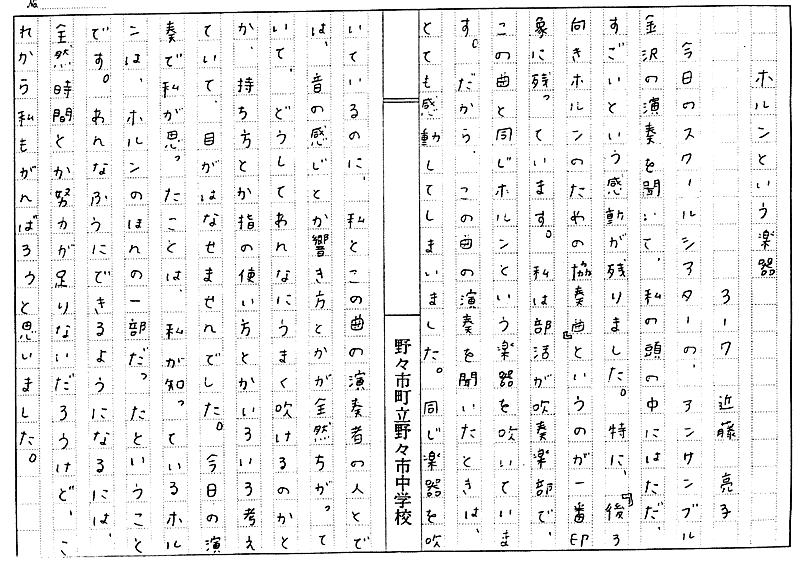 No.
ホルンという楽器
3-7 近藤 亮子
今日のスクールシアターの、アンサンブル
金沢の演奏を聞いて、私の頭の中にはただ、
すごいという感動が残りました。特に、『後ろ
向きホルンのための協奏曲』というのが一番印
象に残っています。私は部活が吹奏楽部で、
この曲と同じホルンという楽器を吹いていま
す。だから、この曲の演奏を聞いたときは、
とても感動してしまいました。同じ楽器を吹
野々市町立野々市中学校
いているのに、私とこの曲の演奏者の人とで
は、音の感じとか響き方とかが全然ちがって
いて、どうしてあんなにうまく吹けるのかと
か、持ち方とか指の使い方とかいろいろ考え
ていて、目がはなせませんでした。今日の演
奏で私が思ったことは、私が知っているホル
ンは、ホルンのほんの一部だったということ
です。あんなふうにできるようになるには、
全然時間とか努力が足りないだろうけど、こ
れから私もがんばろうと思いました。